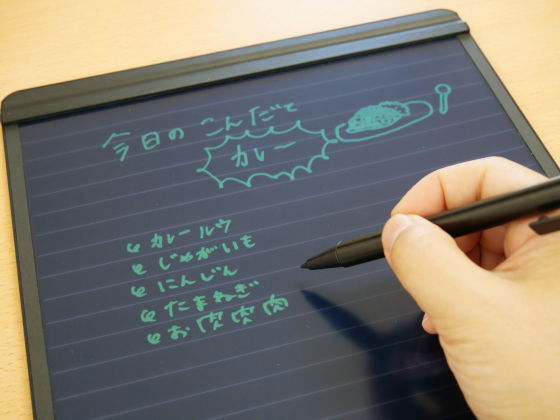 今日のこんだて
カレー
カレールウ
じゃがいも
にんじん
たまねぎ
お肉肉肉